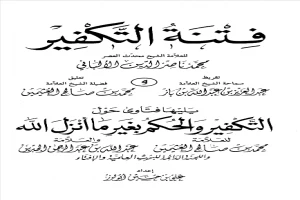 فِتْنَةُ التَّكْفِيرِ
للعلامة الشيخ محدث العصر
محمد ناصر الدين الألباني
تقريظ
تعليق
سماحة الشيخ العلامة
فضيلة الشيخ العلامة
عبد العزيز بن عبد الله بن باز
و
محمد بن صالح العثيمين
ويليها فتاوى حول
التكفير والحكم بغير ما أنزل الله
للعلامة
والعلامة
محمد بن صالح العثيمين
عبد الله بن عبد الرحمن الجبرين
واللجنة الدائمة للبحوث العلمية والإفتاء
إعداد
علي بن حسين أبو لوز